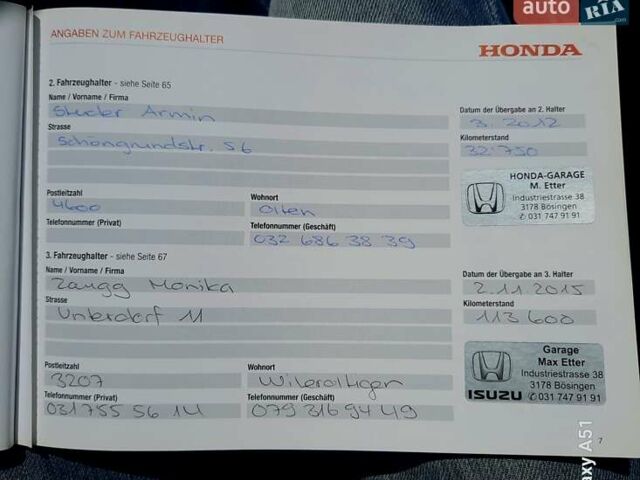 auto RIA.com
ANGABEN ZUM FAHRZEUGHALTER
HONDA
2. Fahrzeughalter - siehe Seite 65
Name / Vorname / Firma
Studer Armin
Datum der Übergabe an 2. Halter
3. 2012
Strasse
Schöngrundstr. 56
Kilometerstand
32'750
HONDA-GARAGE
M. Etter
Industriestrasse 38
3178 Bösingen
✆ 031 747 91 91
Postleitzahl
4600
Wohnort
Olten
Telefonnummer (Privat)
Telefonnummer (Geschäft)
032 686 38 39
3. Fahrzeughalter - siehe Seite 67
Name / Vorname / Firma
Zaugg Monika
Datum der Übergabe an 3. Halter
2.11.2015
Strasse
Unterdorf 11
Kilometerstand
113'600
Garage
Max Etter
Industriestrasse 38
3178 Bösingen
ISUZU ✆ 031 747 91 91
Postleitzahl
3207
Wohnort
Wileroltigen
Telefonnummer (Privat)
031 755 56 14
Telefonnummer (Geschäft)
079 316 94 49
7
axy A51